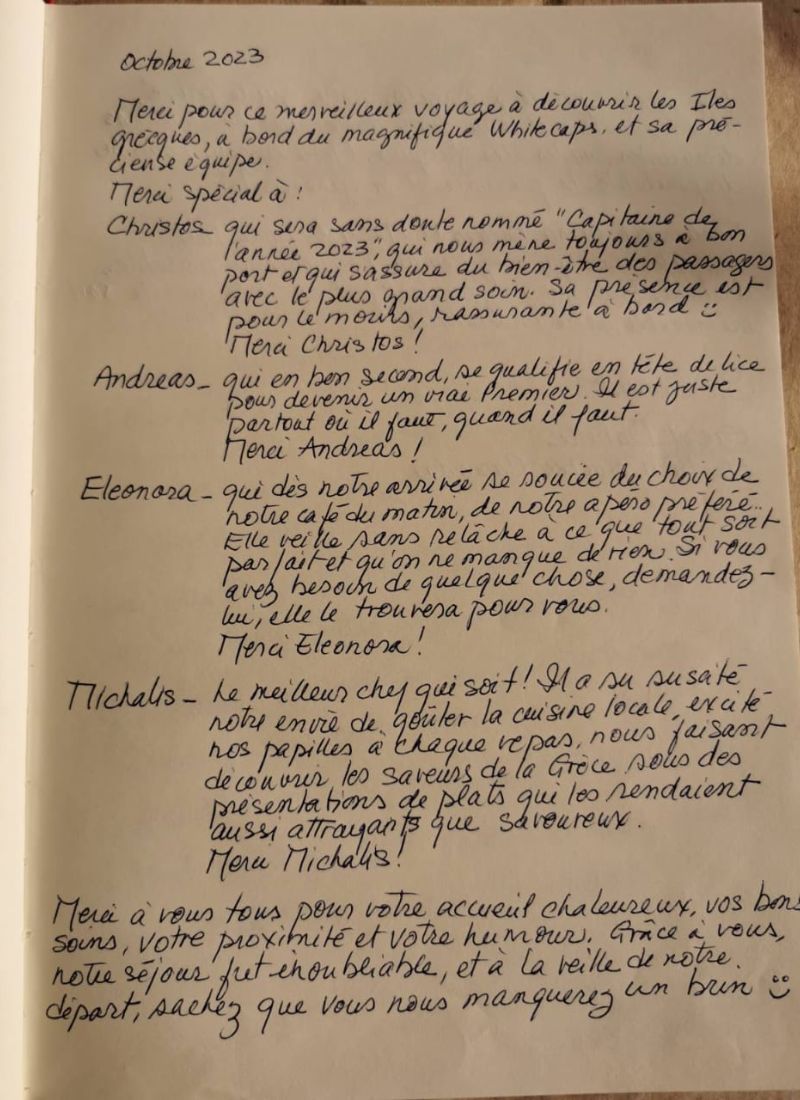 Octobre 2023
Merci pour ce merveilleux voyage à découvrir les Iles
grecques, à bord du magnifique Whitecaps, et sa pré-
cieuse équipe.
Merci spécial à :
Christos_ qui sera sans doute nommé "Capitaine de
l'année 2023", qui nous mène toujours à bon
port et qui s'assure du bien-être des passagers
avec le plus grand soin. Sa présence est
pour le moins, rassurante à bord ☺
Merci Christos !
Andreas_ qui en bon second, se qualifie en tête de lice
pour devenir un vrai Premier. Il est juste
partout où il faut, quand il faut.
Merci Andreas !
Eleonora_ qui dès notre arrivée se soucie du choix de
notre café du matin, de notre apéro préféré..
Elle veille sans relâche à ce que tout soit
parfait et qu'on ne manque de rien. Si vous
avez besoin de quelque chose, demandez-
lui, elle le trouvera pour vous.
Merci Eleonora !
Michalis_ Le meilleur chef qui soit ! Il a su suscité
notre envie de goûter la cuisine locale, excité
nos papilles à chaque repas, nous faisant
découvrir les saveurs de la Grèce sous des
présentations de plats qui les rendaient
aussi attrayants que savoureux.
Merci Michalis !
Merci à vous tous pour votre accueil chaleureux, vos bons
soins, votre proximité et votre humour. Grâce à vous,
notre séjour fut inoubliable, et à la veille de notre
départ, sachez que vous nous manquerez un brin ☺